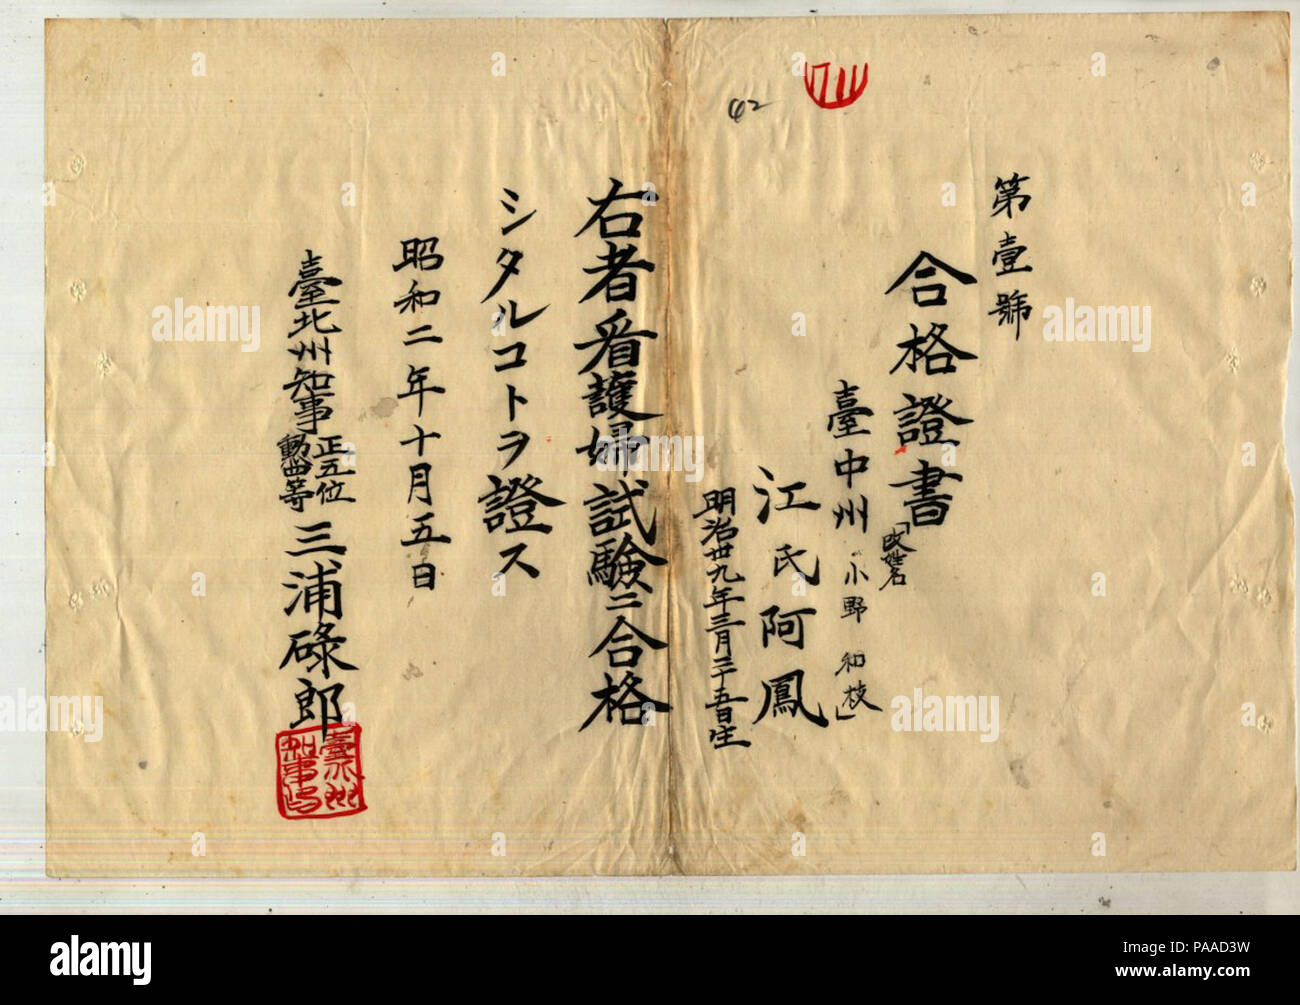 第壹號
合格證書
「改姓名
小野和枝」
臺中州
江氏阿鳳
明治卅九年三月二十五日生
右者看護婦試驗ニ合格
シタルコトヲ證ス
昭和二年十月五日
臺北州知事 正五位 勳四等 三浦碌郎
42
alamy
Image ID: PAAD3W
www.alamy.com